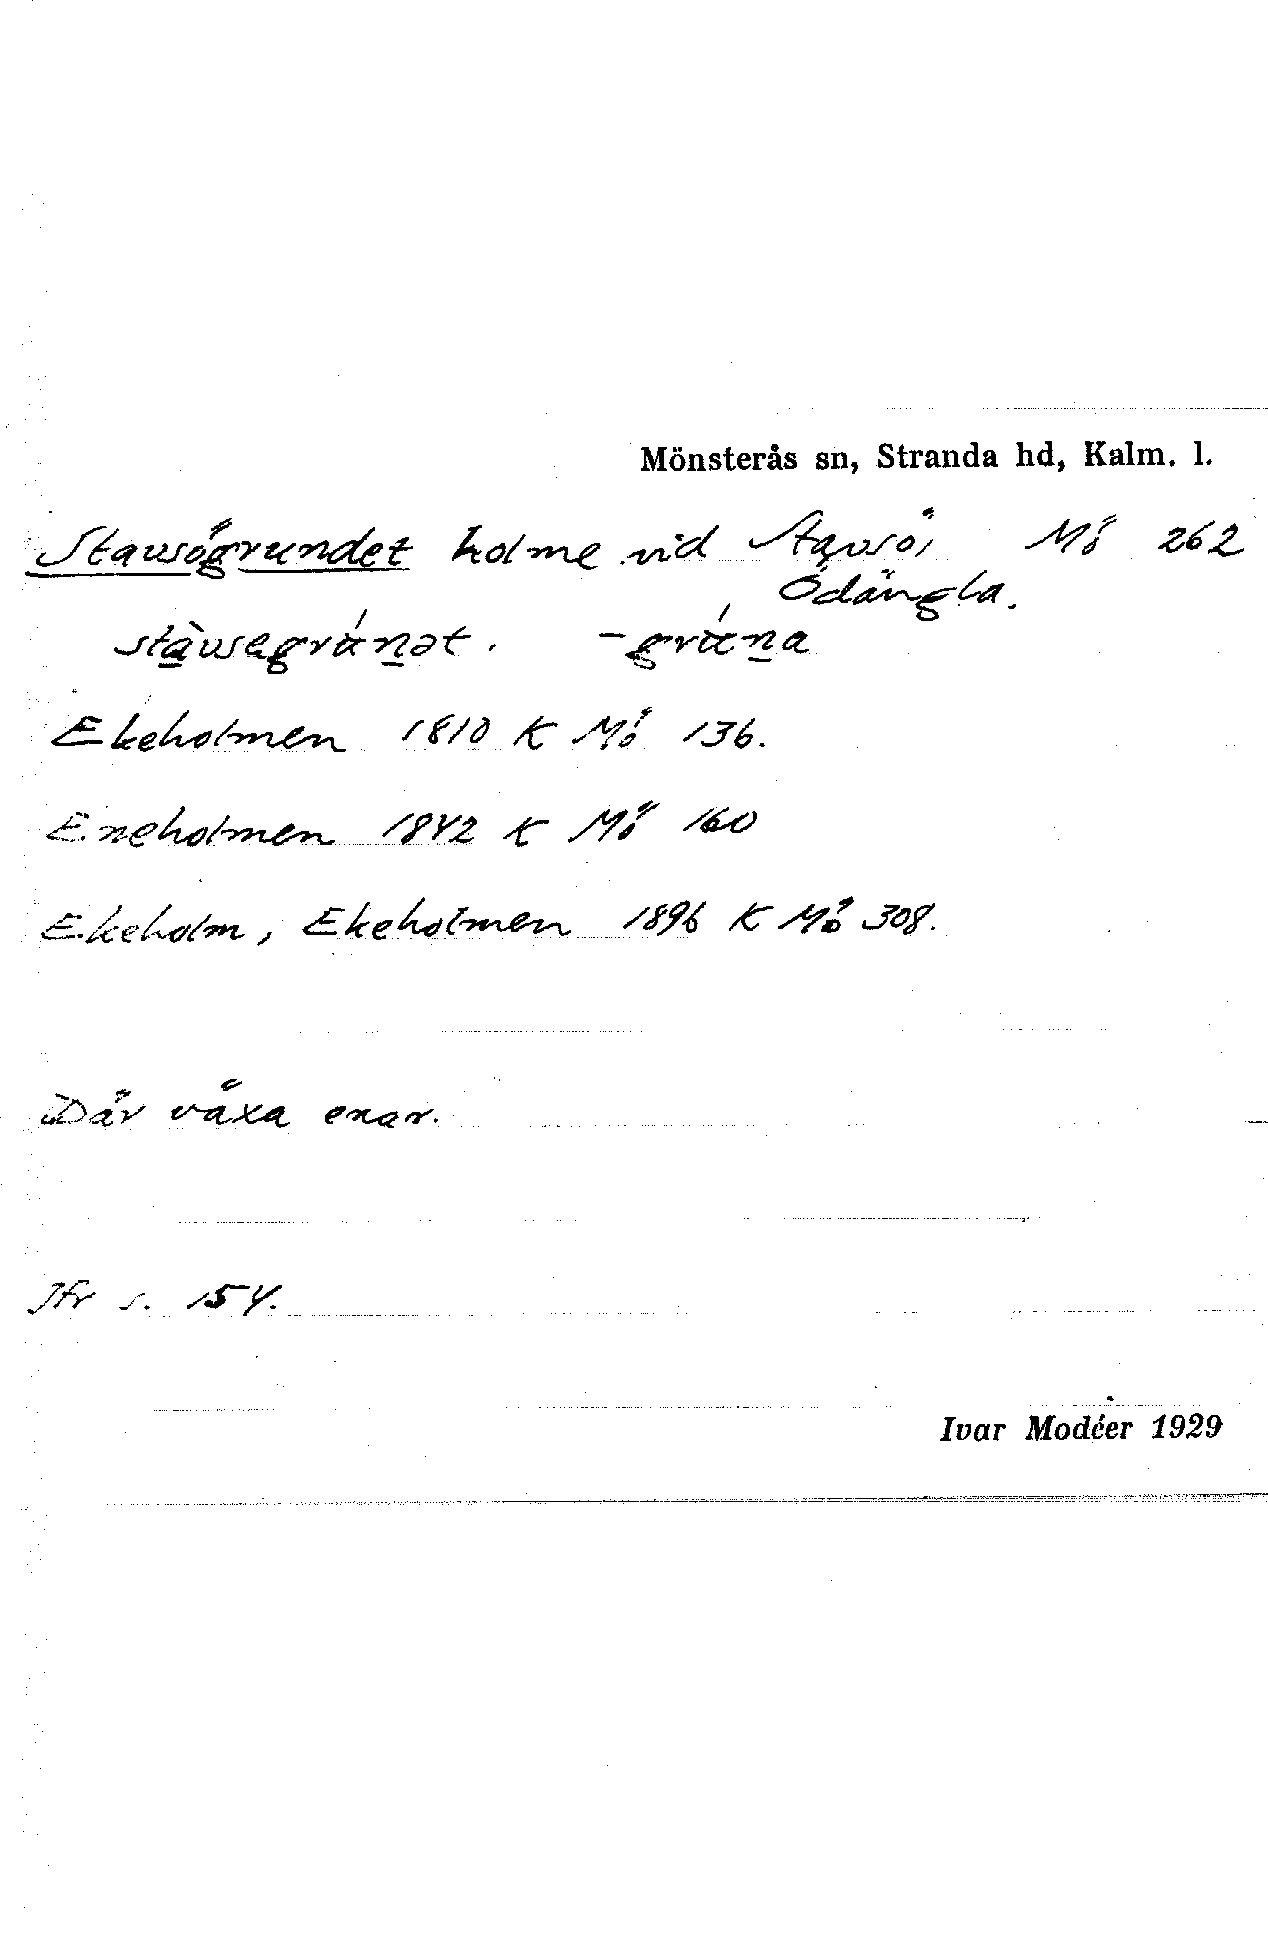 Mönsterås sn, Stranda hd, Kalm. l.
Stavsögrundet holme vid Stavsö, Mö 262
Ödängla.
-gruna
Ekeholmen 1810 K Mö 136.
Eneholmen 1842 K Mö 160
Ekeholm, Ekeholmen 1896 K Mö 308.
Där växa enar.
Jfr s. 154.
Ivar Modéer 1929